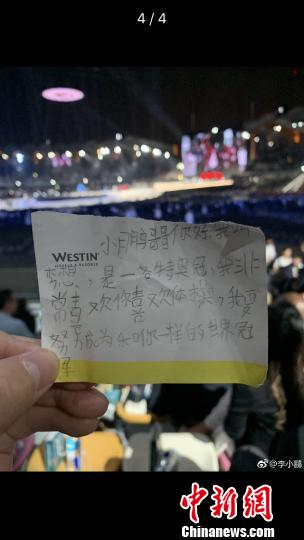 4 / 4
WESTIN
HOTELS & RESORTS
小鹏哥你好,我叫
,是一名特奥冠,我非
常喜欢你喜欢体操,我要
努力成为和你一样的世界冠
军
@李小鹏
中新网
www.chinanews.com